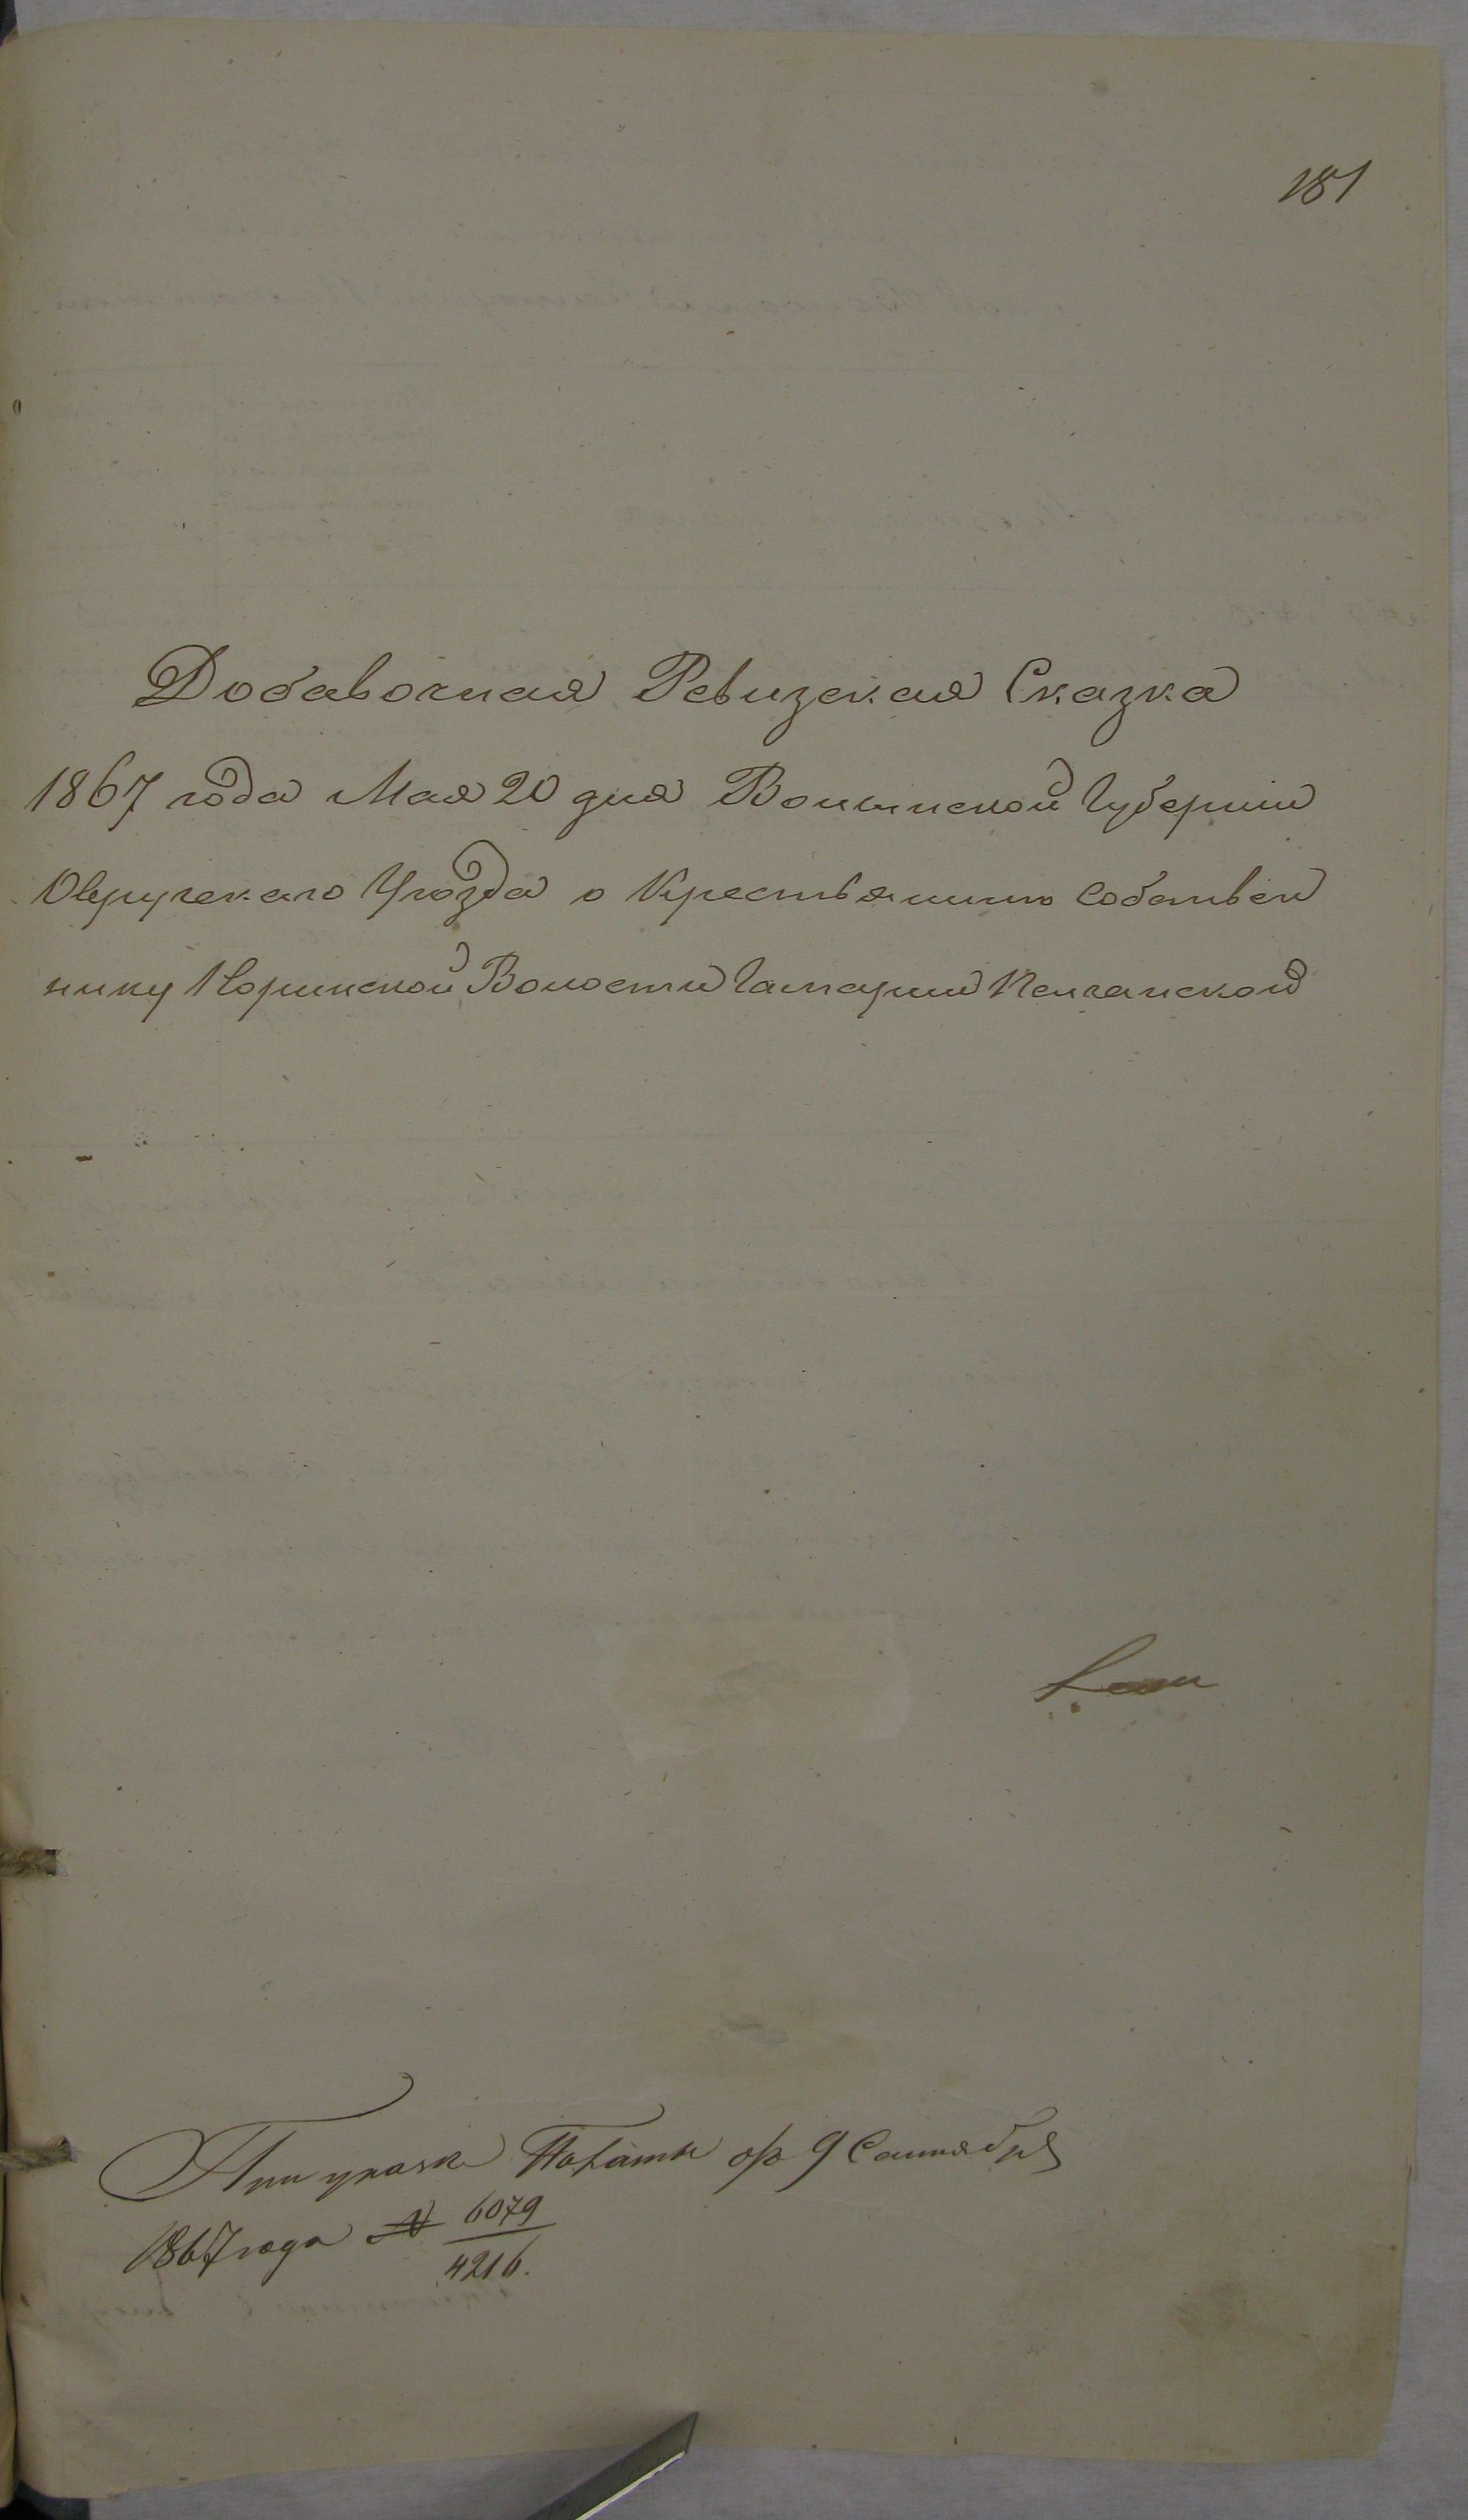 181
Добавочная Ревизская Сказка
1867 года Мая 20 дня Волынской Губернии
Овручскаго Уѣзда о Крестьянинѣ Собствен
нику Норинской Волости Гатаріи
При указѣ Палаты отъ 9 Сентября
1867 года № 6079
4216.